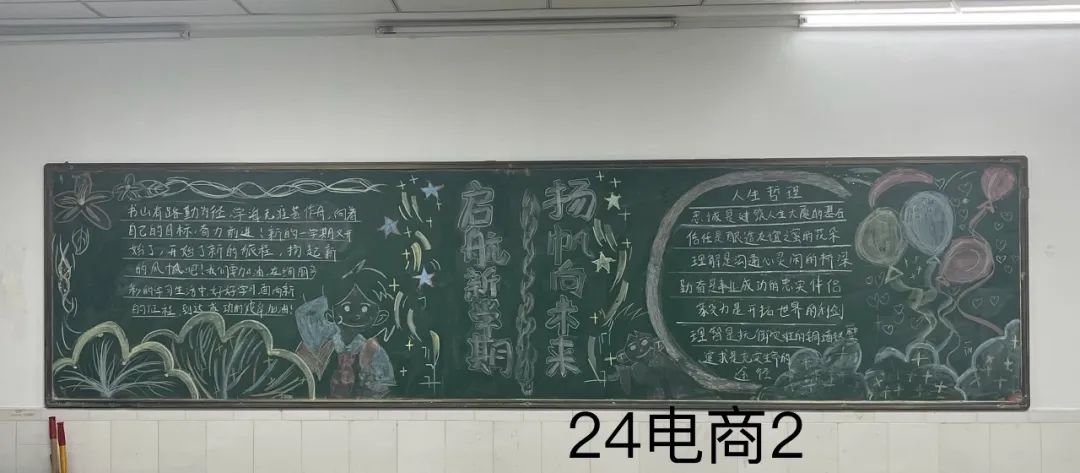 书山有路勤为径,学海无涯苦作舟,向着
自己的目标,奋力前进!新的一学期又开
始了,开始了新的旅程,扬起新
的风帆吧!我们努力
的学习生活中,好好学习,面向新
的征程,到达成功的彼岸加油!
启航新学期
扬帆向未来
人生哲理
忠诚是建筑人生大厦的基石
信任是酿造友谊之蜜的花朵
理解是沟通心灵间的桥梁
勤奋是事业成功的忠实伴侣
毅力是开拓世界的利剑
理智是抗御灾难的铜墙铁壁
追求是充实生命的
途径
24电商2